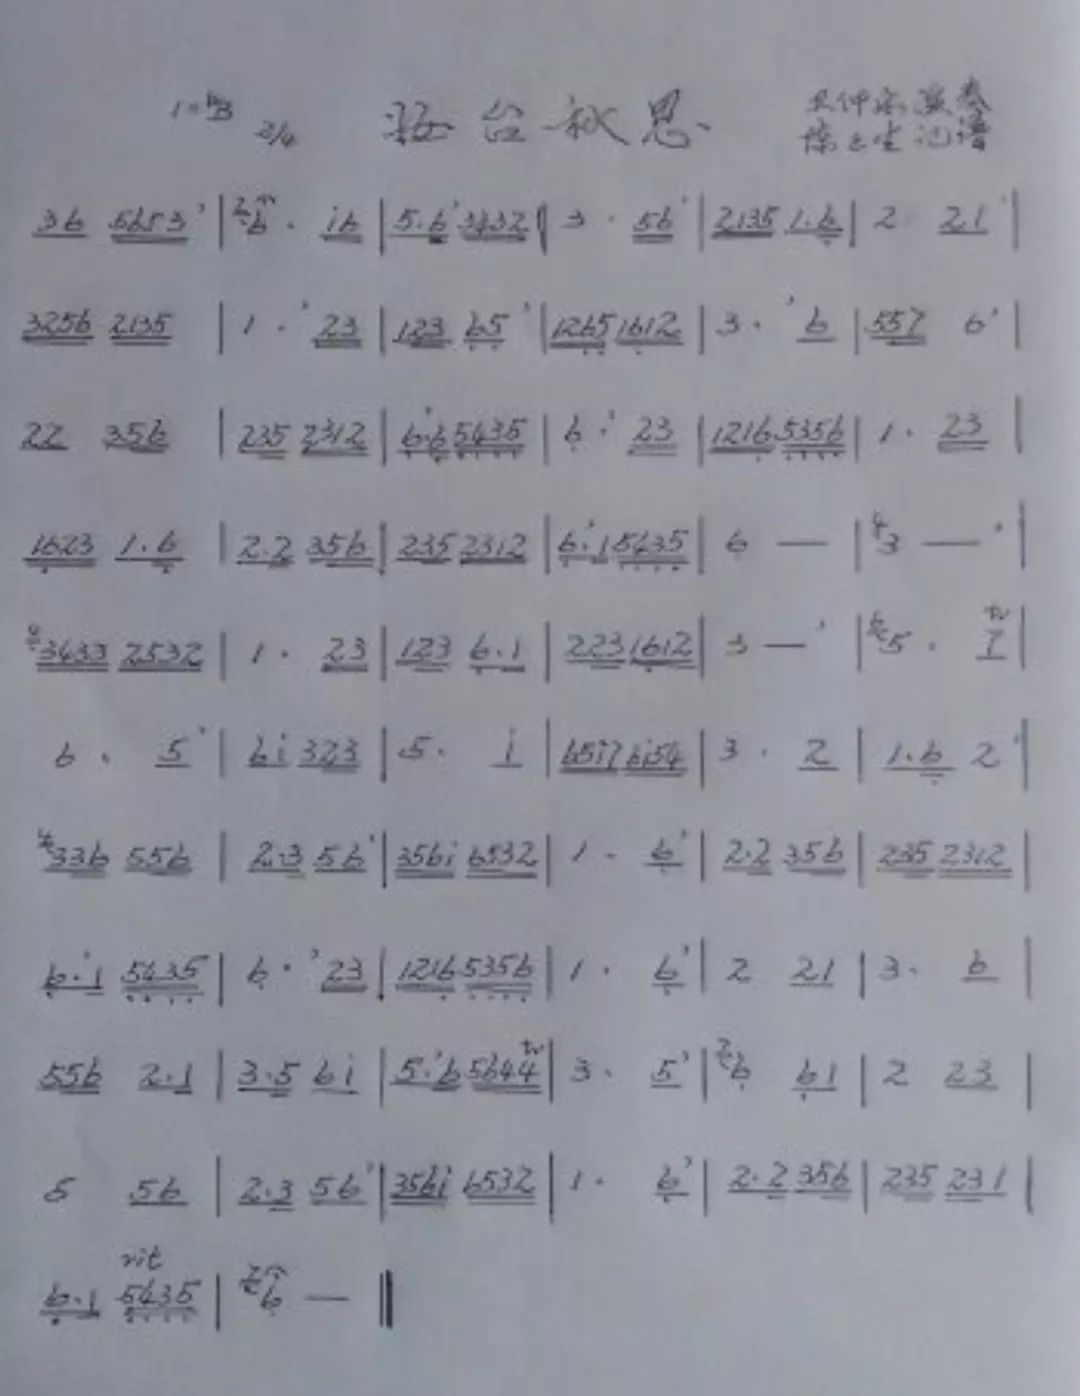 1=ᵇB 2/4 妆台秋思 王仲丙演奏
陈立生记谱
36 5653' | 6· i6 | 5.6' 3432 | 3· 56' | 2135 1.6 | 2· 21' |
3256 2135 | 1·' 23 | 123 65' | 1265 1612 | 3·' 6 | 557 6' |
22 356 | 235 2312 | 6.'6 5435 | 6·' 23 | 1216 5356 | 1· 23 |
1623 1.6 | 2.2 356 | 235 2312 | 6.'1 5435 | 6 — | 3 —' |
3433 2532 | 1· 23 | 123 6.1 | 223 1612 | 3 —' | 5· 7 |
6· 5' | 6i 323 | 5· i | 65i7 6i54 | 3· 2 | 1.6 2' |
336 556 | 2.3 56' | 356i 6532 | 1· 6' | 2.2 356 | 235 2312 |
6.'1 5435 | 6·' 23 | 1216 5356 | 1· 6' | 2 21 | 3· 6 |
556 2.1 | 3.5 6i | 5.'6 5644 | 3· 5' | 6 61 | 2 23 |
5 56 | 2.3 56' | 356i 6532 | 1· 6' | 2.2 356 | 235 231 |
rit
6.1 5435 | 6 — ‖